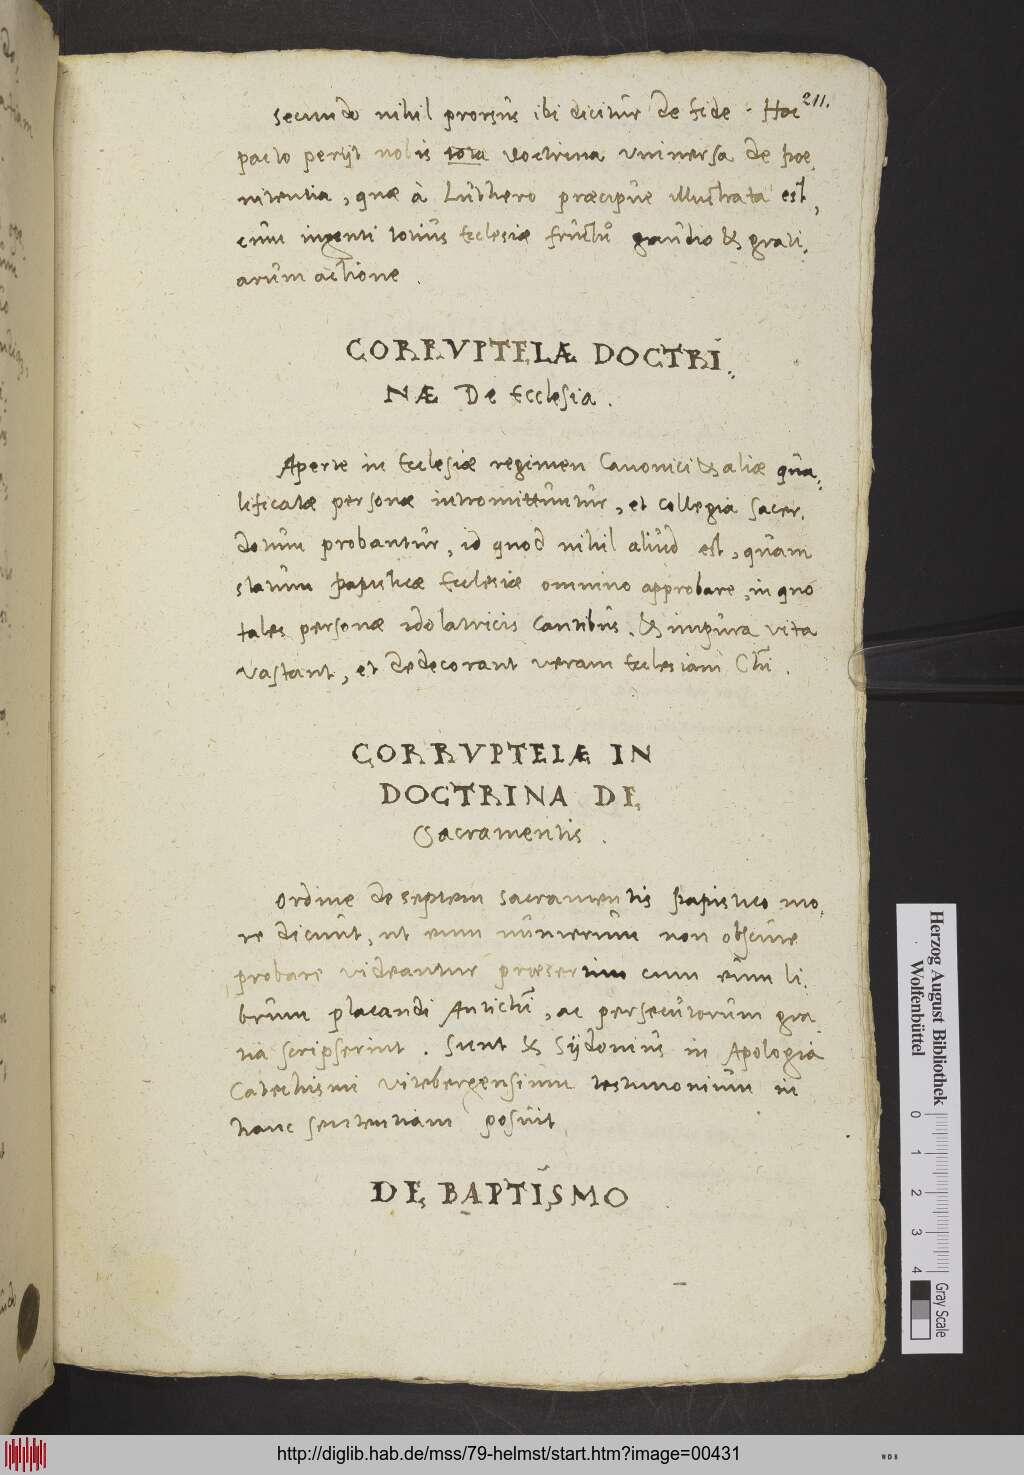 211.
secundo nihil prorsus ibi dicitur de fide. Hoc
pacto perijt nobis tota doctrina vniuersa de poe,
nitentia, quæ à Luthero præcipue illustrata est,
cum ingenti totius Ecclesiæ fructu gaudio & grati,
arum actione.
CORRVPTELÆ DOCTRI,
NÆ De Ecclesia.
Aperte in Ecclesiæ regimen Canonici & aliæ qua,
lificatæ personæ intromittuntur, et collegia sacer,
dotum probantur, id quod nihil aliud est, quam
statum papisticæ Ecclesiæ omnino approbare, in quo
tales personæ idolatricis Cantibus, & impura vita
vastant, et dedecorant veram Ecclesiam Chi.
CORRVPTELÆ IN
DOCTRINA DE
Sacramentis.
Ordine de septem sacramentis papistico mo,
re dicunt, ut eum numerum non obscure
probare videantur præsertim cum eum li,
brum placandi Antichi, ac persecutorum gra,
tia scripserint. Sunt & Sydonius in Apologia
Catechismi vitebergensium testimonium in
hanc sententiam posuit
DE BAPTISMO
Herzog August Bibliothek
Wolfenbüttel
0 1 2 3 4
Gray Scale
http://diglib.hab.de/mss/79-helmst/start.htm?image=00431
WDB